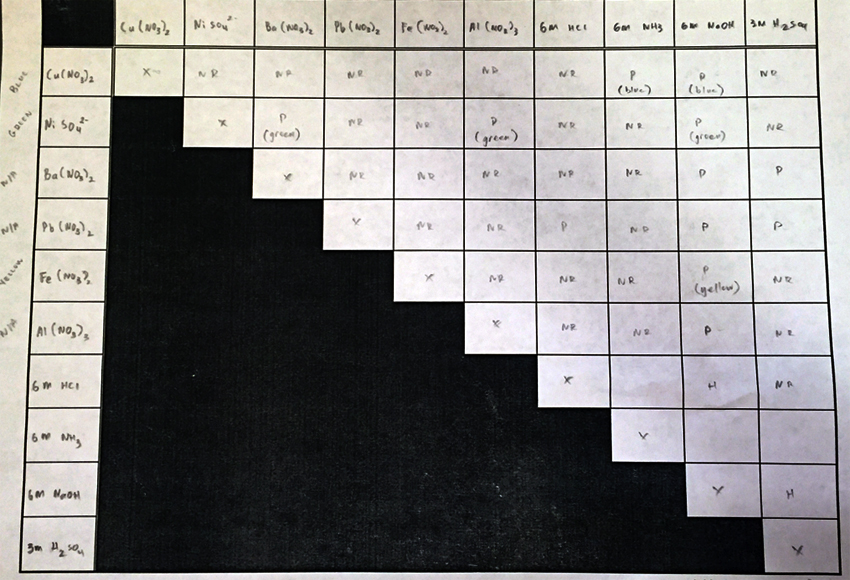 Cu(NO3)2 Ni SO4 2- Ba(NO3)2 Pb(NO3)2 Fe(NO3)2 Al(NO3)3 6m HCl 6m NH3 6m NaOH 3M H2SO4
BLUE Cu(NO3)2 X NR NR NR NR NR NR P (blue) P (blue) NR
GREEN Ni SO4 2- X P (green) NR NR P (green) NR NR P (green) NR
N/A Ba(NO3)2 X NR NR NR NR NR P P
N/A Pb(NO3)2 X NR NR P NR P P
Yellow Fe(NO3)2 X NR NR NR P (yellow) NR
N/A Al(NO3)3 X NR NR P NR
6M HCl X H NR
6M NH3 X
6M NaOH X H
3m H2SO4 X